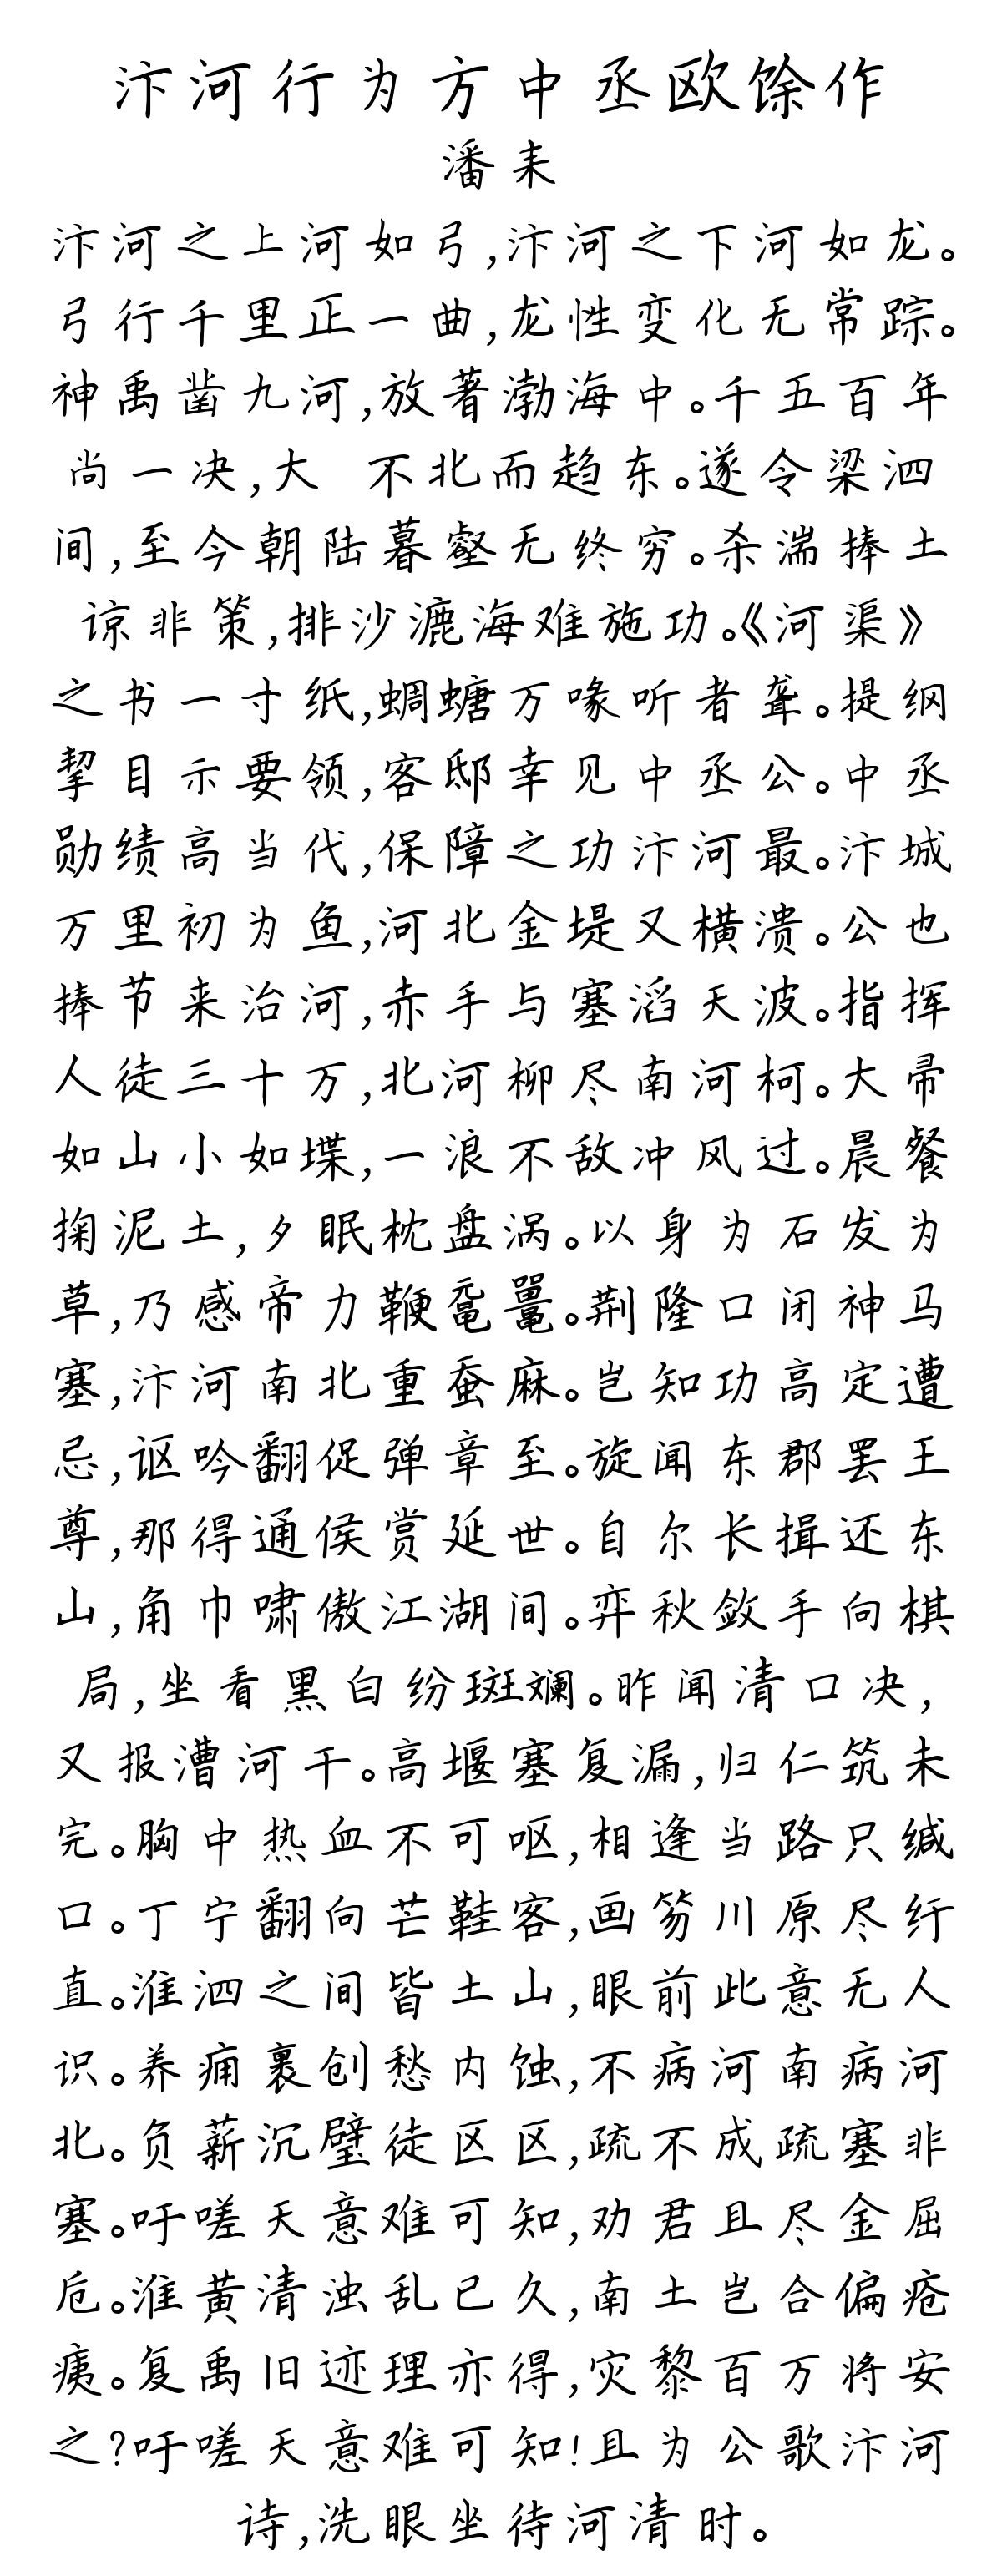 汴河行为方中丞欧馀作
潘耒
汴河之上河如弓,汴河之下河如龙。
弓行千里正一曲,龙性变化无常踪。
神禹凿九河,放著渤海中。千五百年
尚一决,大 不北而趋东。遂令梁泗
间,至今朝陆暮壑无终穷。杀湍捧土
谅非策,排沙漉海难施功。《河渠》
之书一寸纸,蜩螗万喙听者聋。提纲
挈目示要领,客邸幸见中丞公。中丞
勋绩高当代,保障之功汴河最。汴城
万里初为鱼,河北金堤又横溃。公也
捧节来治河,赤手与塞滔天波。指挥
人徒三十万,北河柳尽南河柯。大帚
如山小如堞,一浪不敌冲风过。晨餐
掬泥土,夕眠枕盘涡。以身为石发为
草,乃感帝力鞭鼋鼍。荆隆口闭神马
塞,汴河南北重蚕麻。岂知功高定遭
忌,讴吟翻促弹章至。旋闻东郡罢王
尊,那得通侯赏延世。自尔长揖还东
山,角巾啸傲江湖间。弈秋敛手向棋
局,坐看黑白纷斑斓。昨闻清口决,
又报漕河干。高堰塞复漏,归仁筑未
完。胸中热血不可呕,相逢当路只缄
口。丁宁翻向芒鞋客,画笏川原尽纡
直。淮泗之间皆土山,眼前此意无人
识。养痈裹创愁内蚀,不病河南病河
北。负薪沉璧徒区区,疏不成疏塞非
塞。吁嗟天意难可知,劝君且尽金屈
卮。淮黄清浊乱已久,南土岂合偏疮
痍。复禹旧迹理亦得,灾黎百万将安
之?吁嗟天意难可知!且为公歌汴河
诗,洗眼坐待河清时。